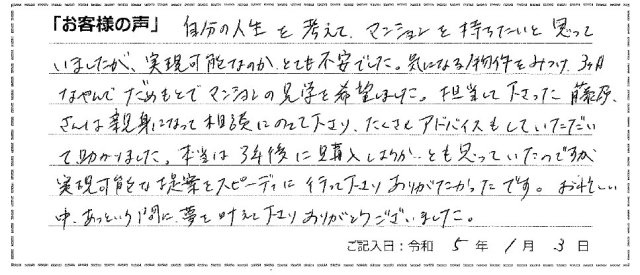 「お客様の声」 自分の人生を考えて、マンションを持ちたいと思って
いましたが、実現可能なのか、とても不安でした。気になる1物件をみつけ、3ヶ月
なやんでだめもとでマンションの見学を希望しました。担当して下さった藤原
さんは親身になって相談にのって下さり、たくさんアドバイスもしていただい
て助かりました。本当は3年後に購入しようか…とも思っていたのですが、
実現可能な提案をスピーディに行って下さりありがたかったです。お忙しい
中、あっという間に夢を叶えて下さりありがとうございました。
ご記入日：令和 5 年 1 月 3 日